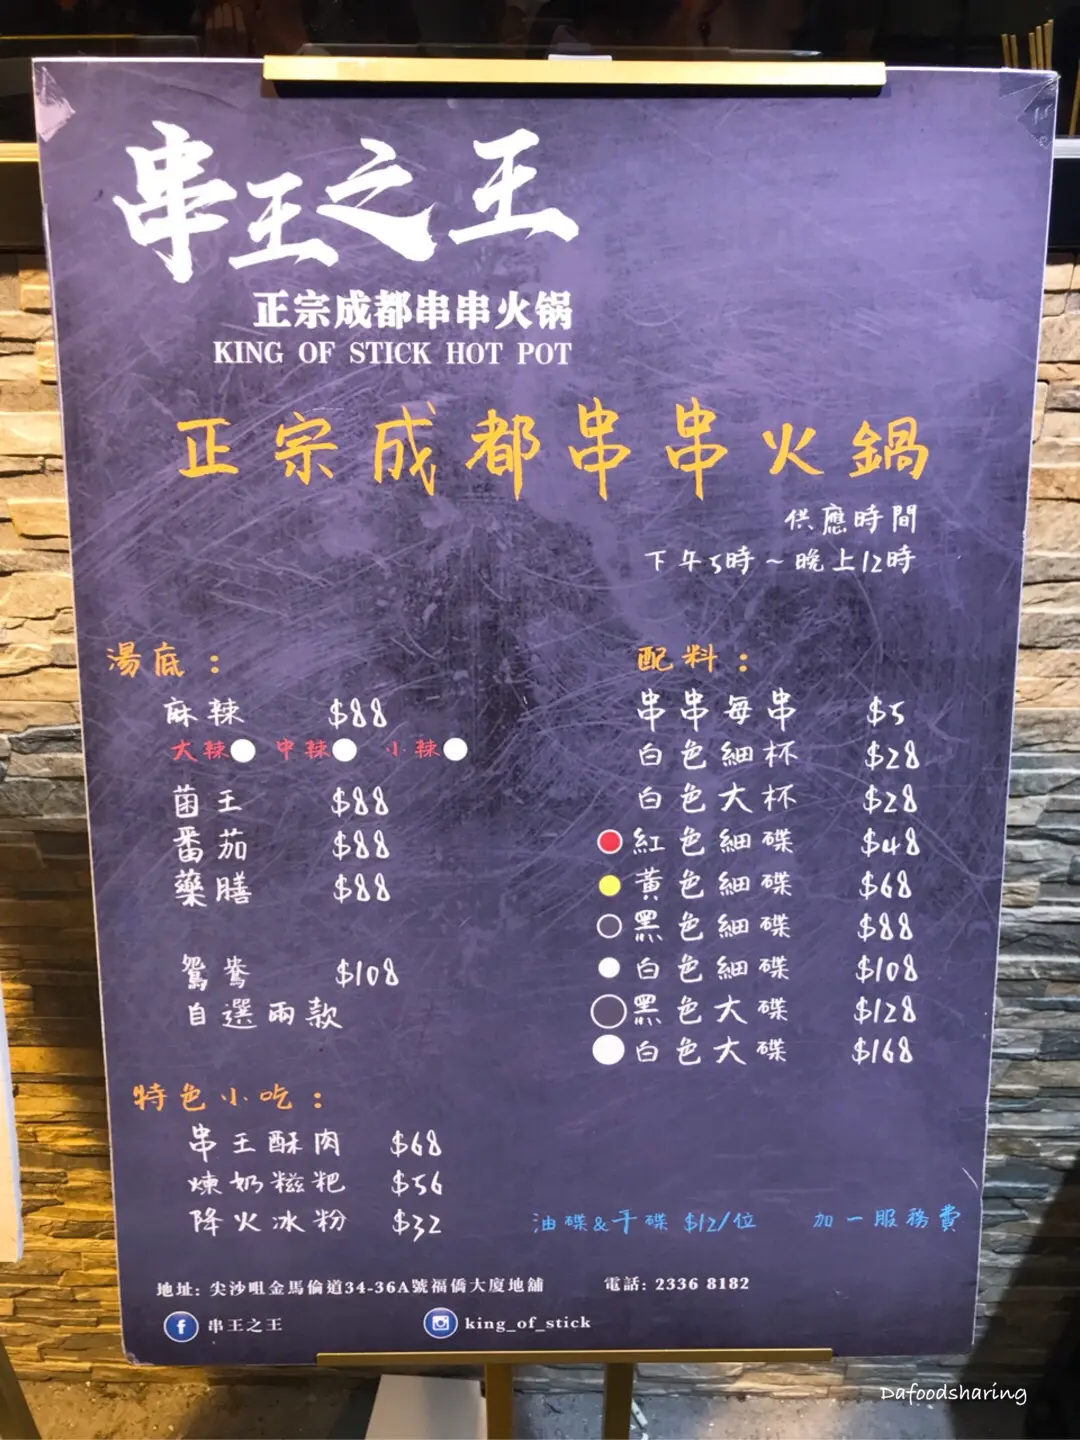 串王之王
正宗成都串串火锅
KING OF STICK HOT POT
正宗成都串串火鍋
供應時間
下午5時~晚上12時
湯底：
麻辣 $88
大辣 中辣 小辣
菌王 $88
番茄 $88
藥膳 $88
鴛鴦 $108
自選兩款
特色小吃：
串王酥肉 $68
煉奶糍粑 $56
降火冰粉 $32
配料：
串串每串 $5
白色細杯 $28
白色大杯 $28
紅色細碟 $48
黃色細碟 $68
黑色細碟 $88
白色細碟 $108
黑色大碟 $128
白色大碟 $168
油碟&干碟 $12/位 加一服務費
地址: 尖沙咀金馬倫道34-36A號福僑大廈地舖 電話: 2336 8182
串王之王 king_of_stick
Dafoodsharing